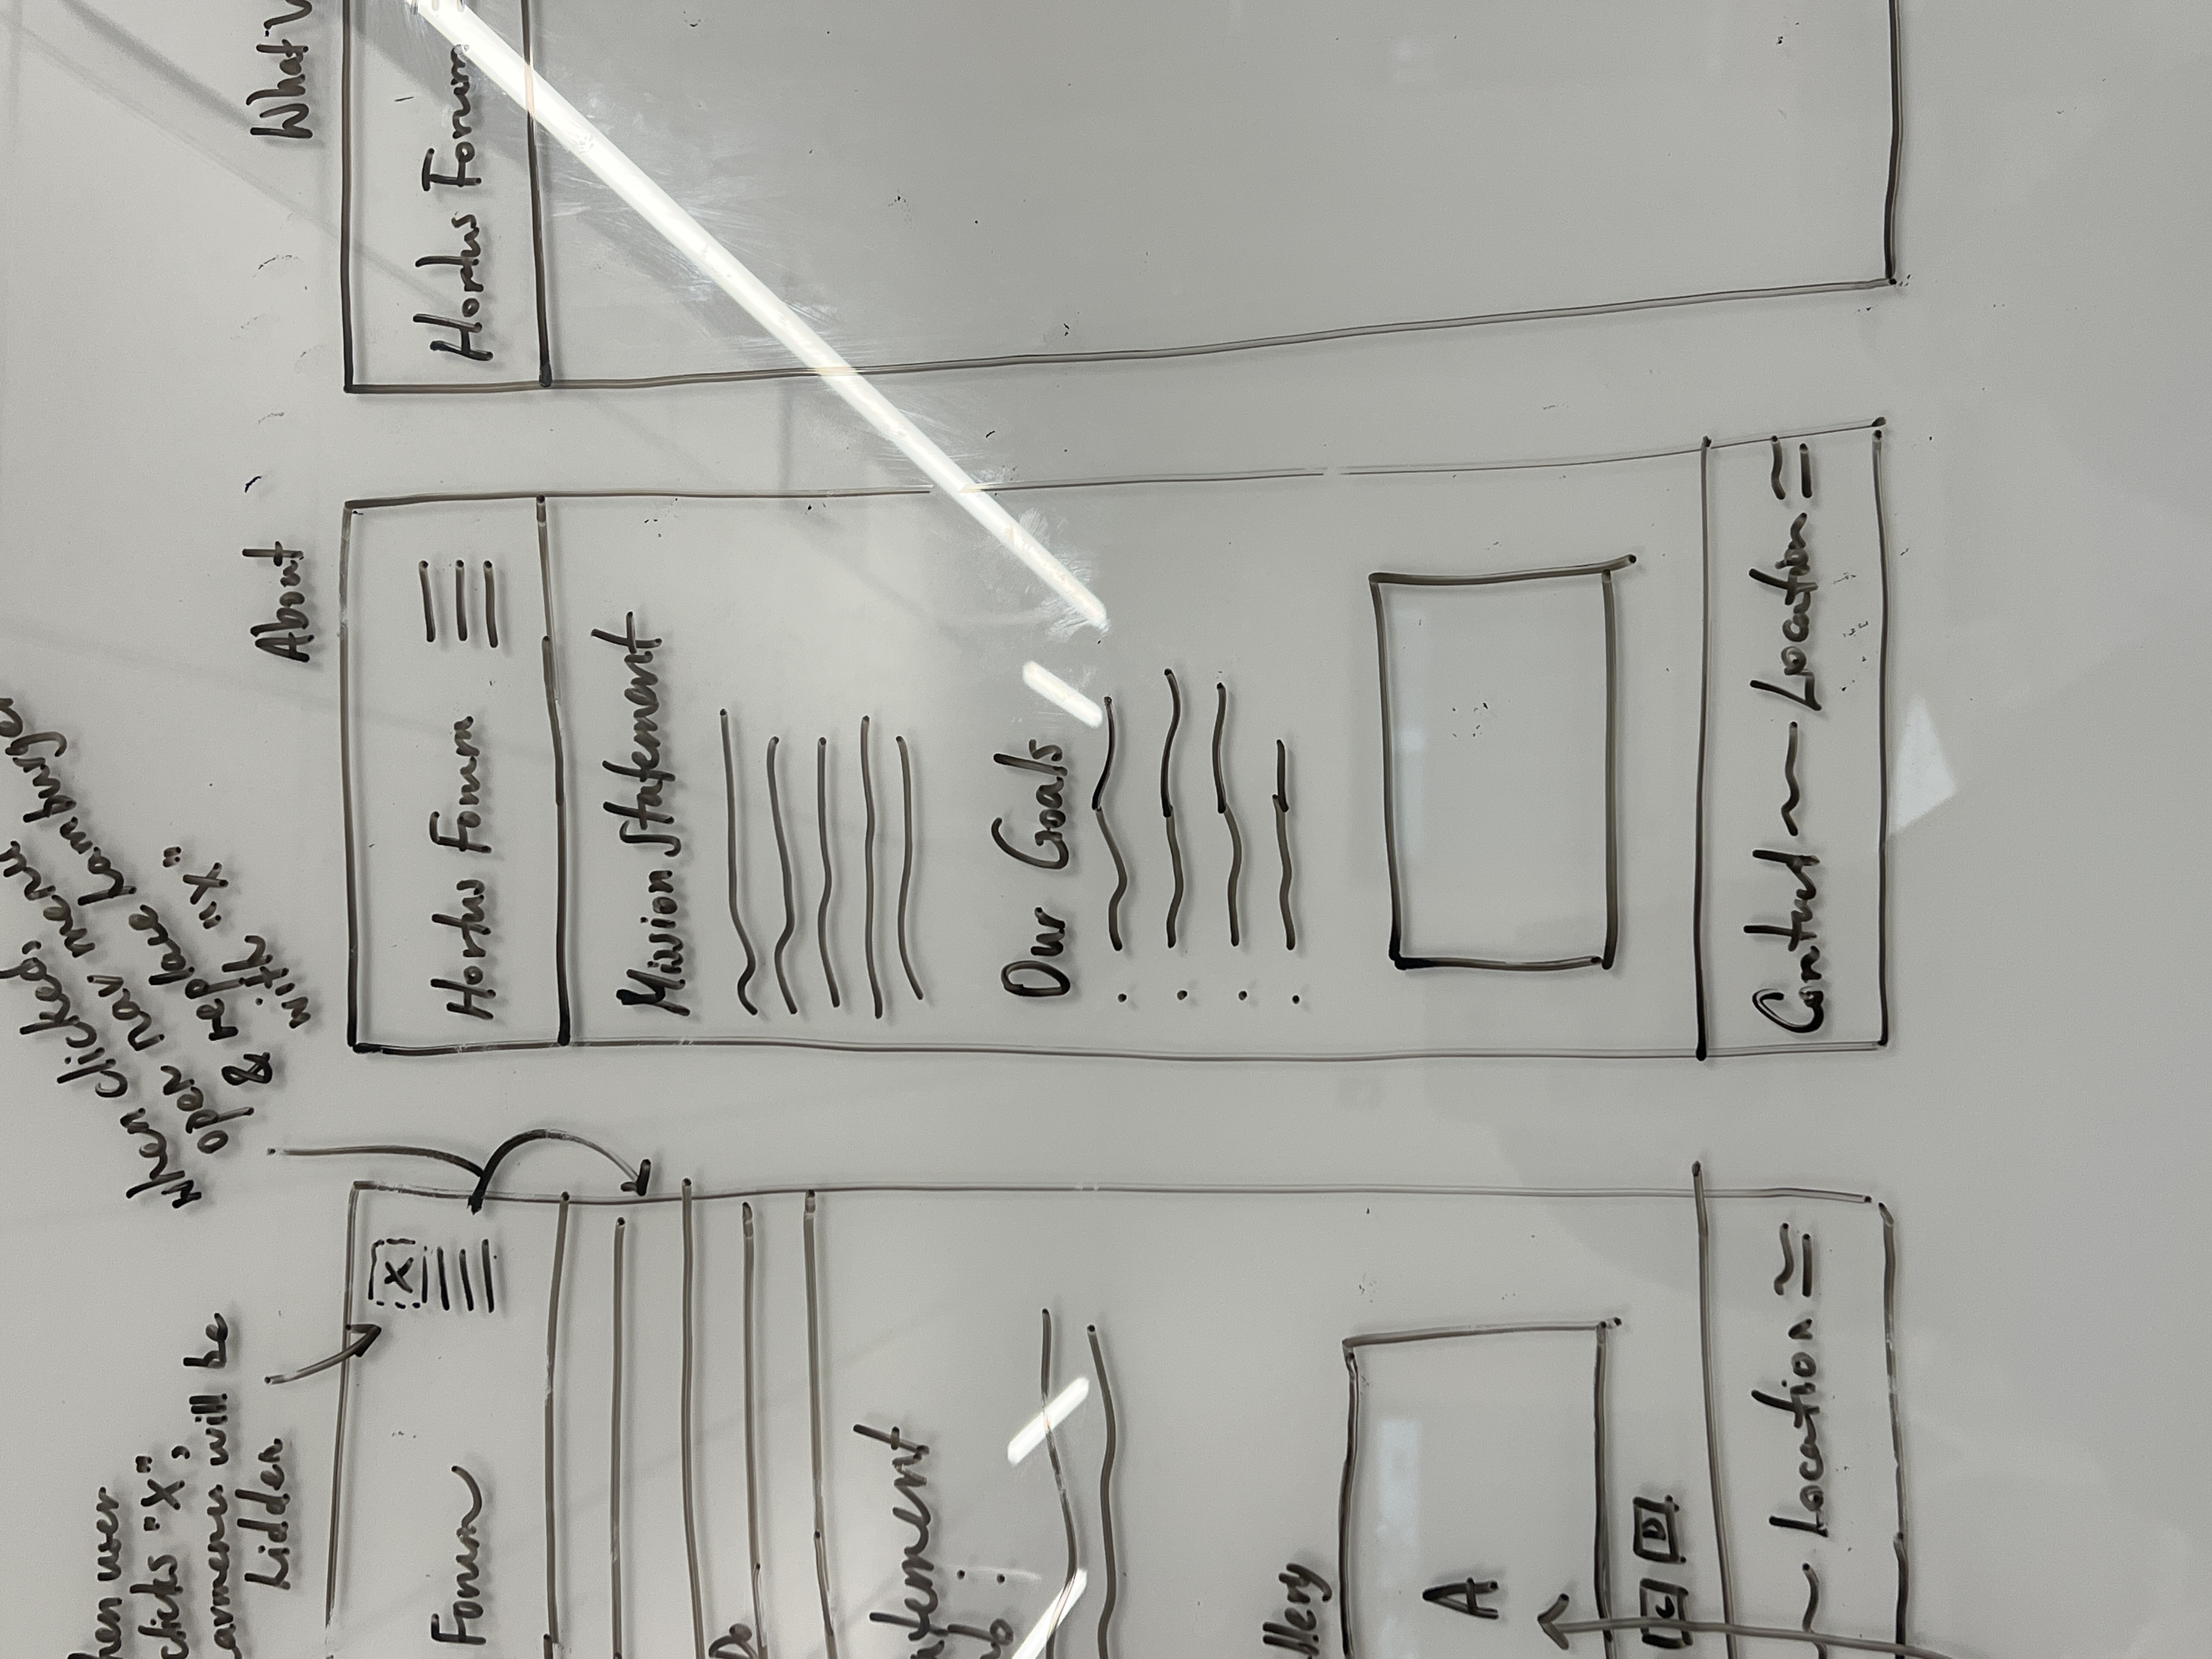 hen user
clicks "X",
navmenu will be
hidden
when clicked,
open nav menu
& replace hamburger
with "X"
X
Forum
Do
atement
:
llery
A
C D
Location
About
Hortus Forum
Mission Statement
Our Goals
Contact Location
What W
Hortus Forum